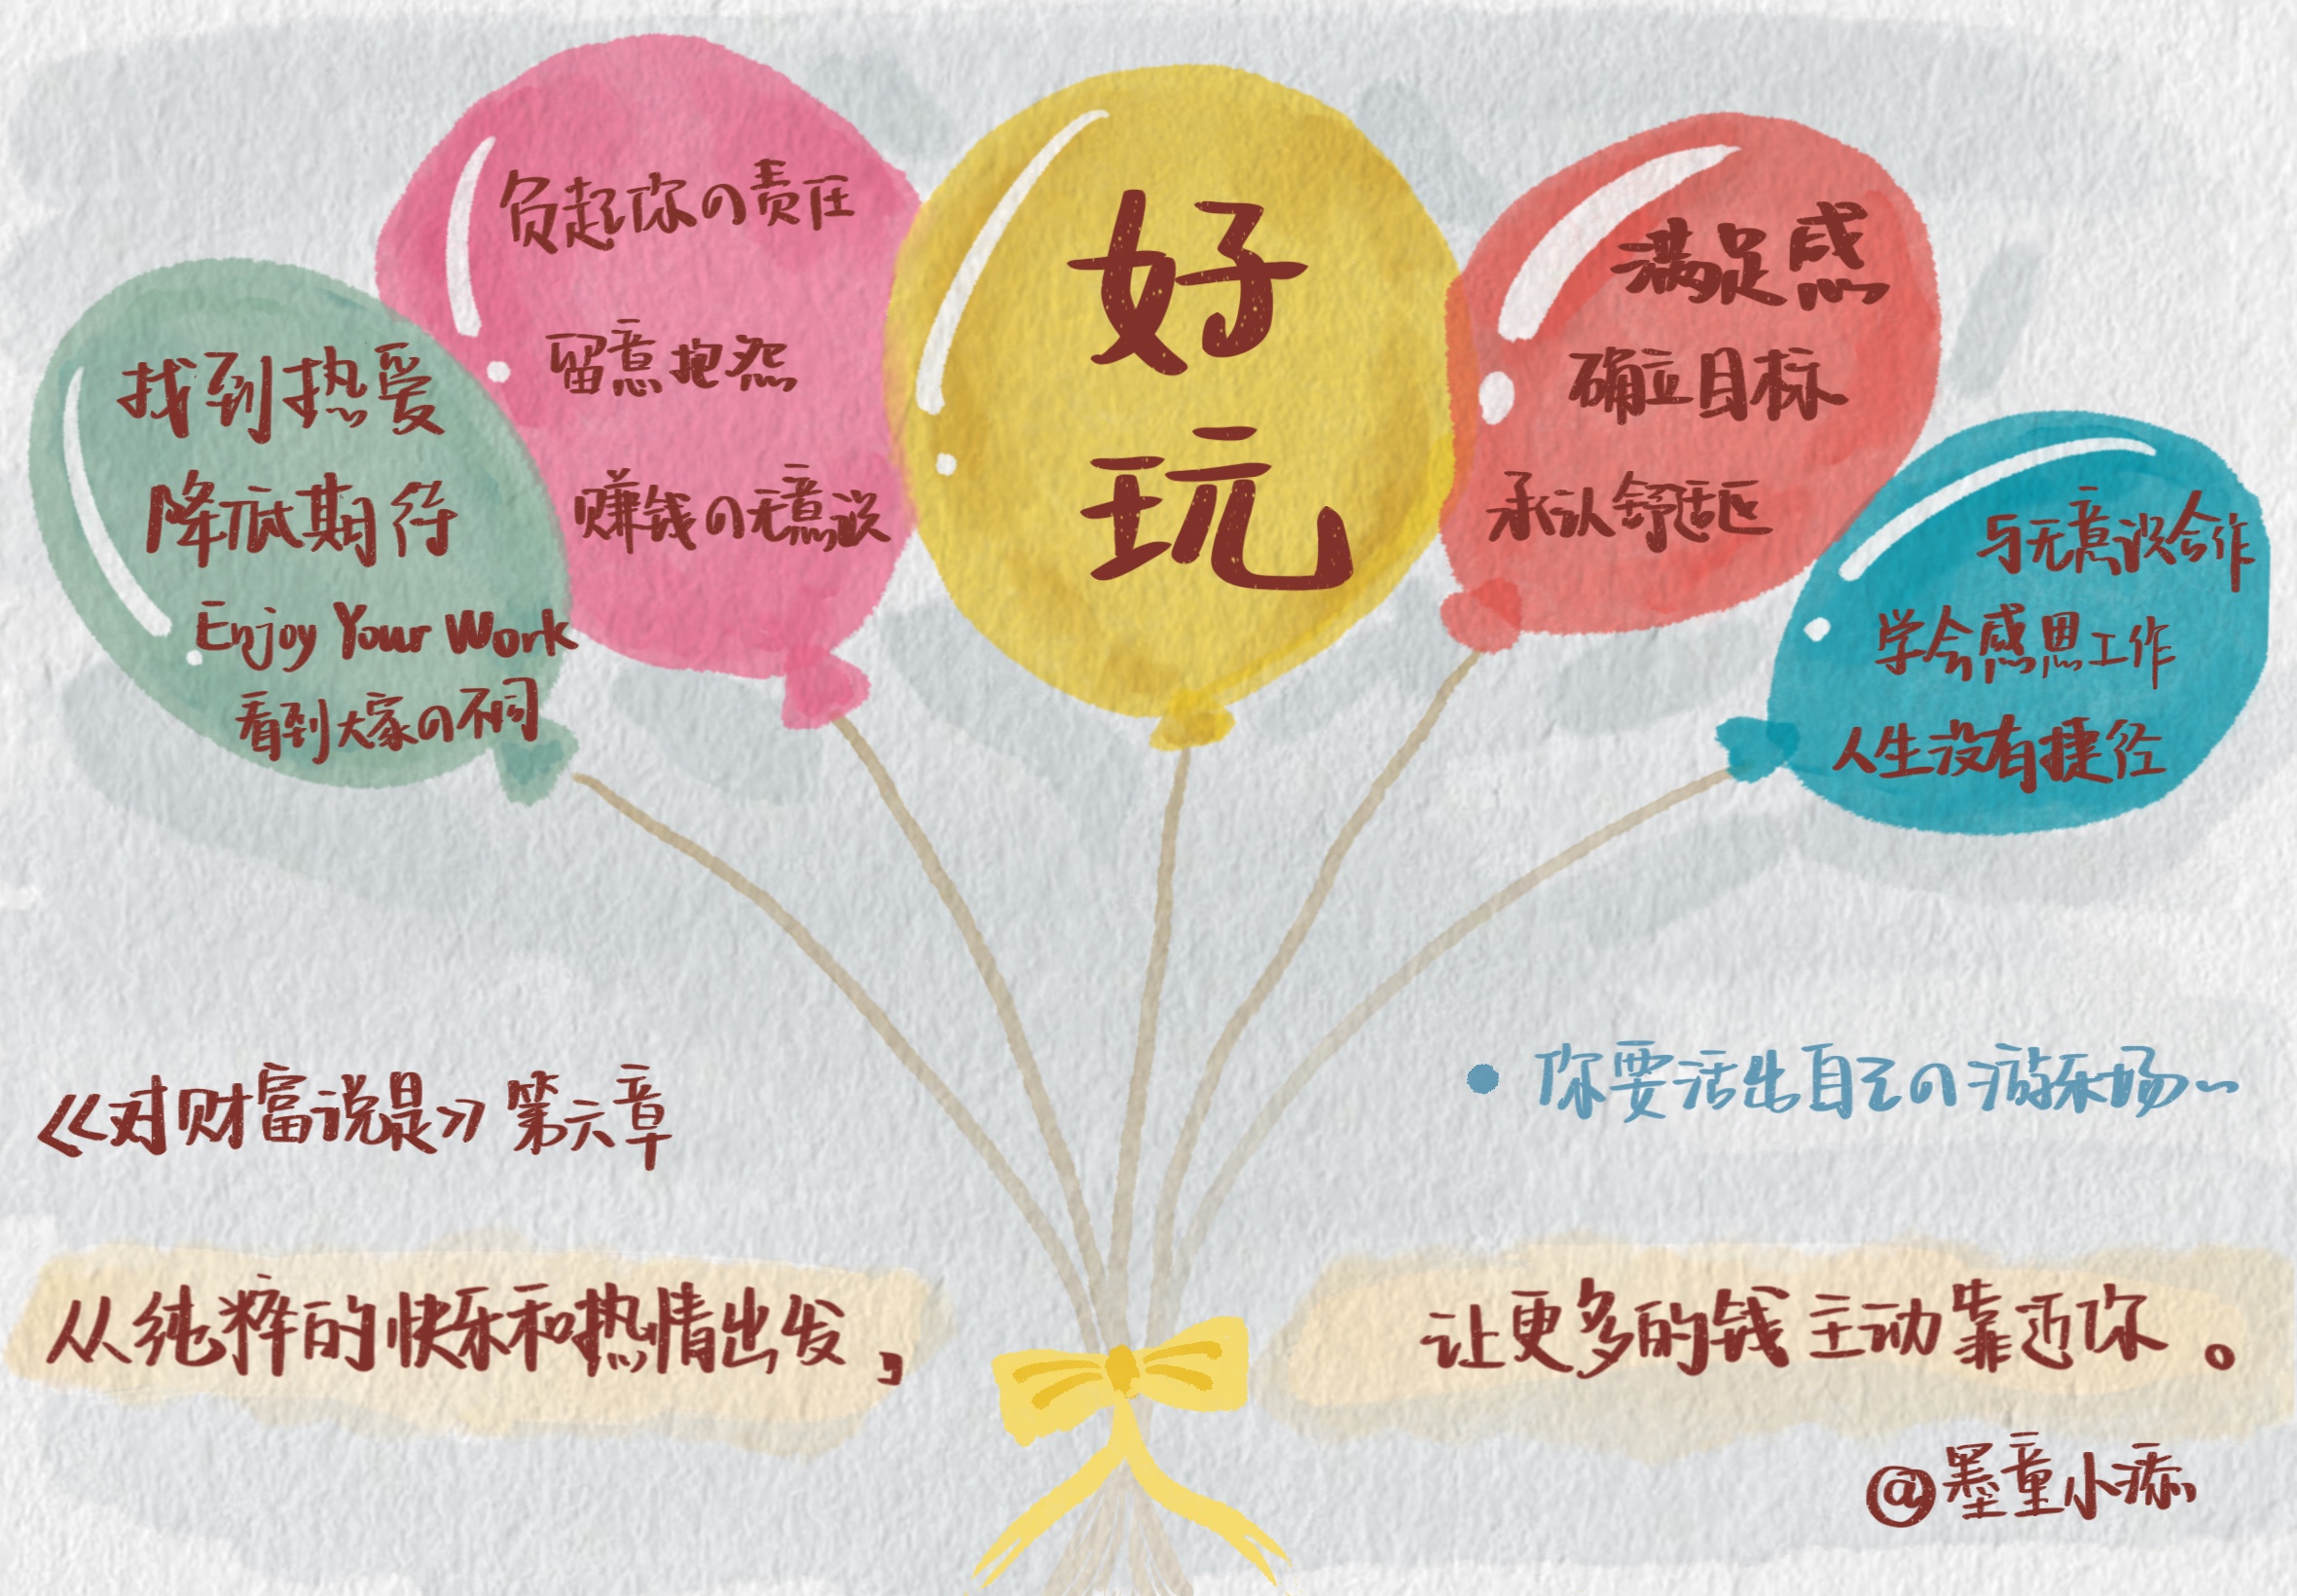 找到热爱
降低期待
Enjoy Your Work
看到大家の不同
负起你の责任
留意抱怨
赚钱の无意识
好
玩
满足感
确立目标
承认舒适区
与无意识合作
学会感恩工作
人生没有捷径
《对财富说是》第六章
• 你要活出自己の游乐场~
从纯粹的快乐和热情出发，
让更多的钱主动靠近你。
@墨童小添